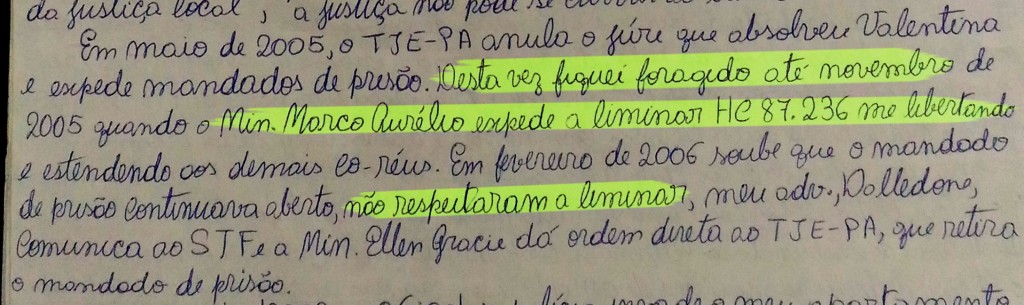 da justiça local, a justiça não pode se
Em maio de 2005, o TJE-PA anula o júri que absolveu Valentina
e expede mandados de prisão. Desta vez fiquei foragido até novembro de
2005 quando o Min. Marco Aurélio expede a liminar HC 87.236 me libertando
e estendendo aos demais co-réus. Em fevereiro de 2006 soube que o mandado
de prisão continuava aberto, não respeitaram a liminar, meu adv., Dalledone,
comunica ao STF e a Min. Ellen Gracie dá ordem direta ao TJE-PA, que retira
o mandado de prisão.
o meu apartamento